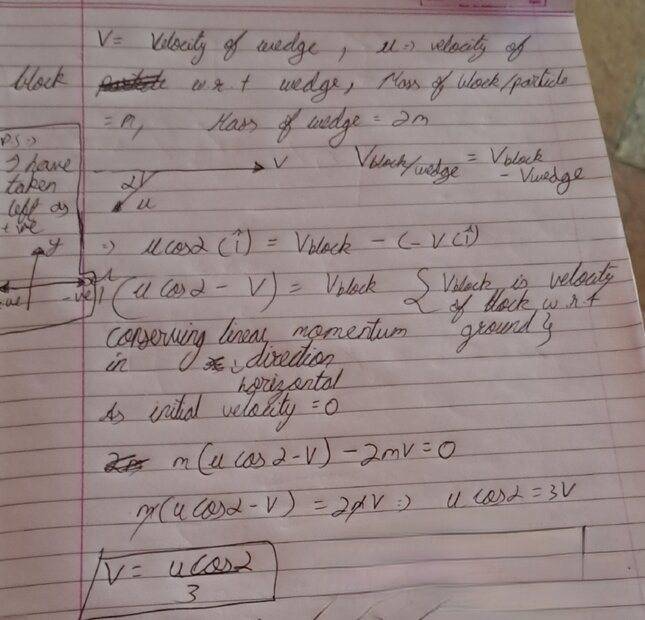 V = Velocity of wedge, u => velocity of
block particle w.r.t wedge, Mass of block/particle
= m, Mass of wedge = 2m
PS =>
I have
taken
left as
+ve
y
+ve
-ve
V
α
u
Vblock/wedge = Vblock
- Vwedge
=> u cos α (î) = Vblock - (-V(î)
(u cos α - V) = Vblock { Vblock is velocity
of block w.r.t
ground }
conserving linear momentum
in x direction
horizontal
As initial velocity = 0
2m m(u cos α - V) - 2mV = 0
m(u cos α - V) = 2mV => u cos α = 3V
V = u cos α
3